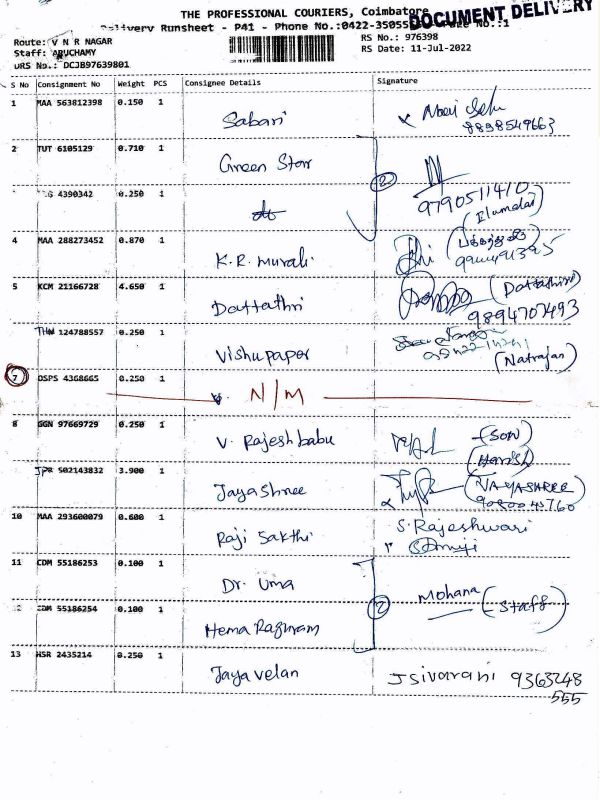 THE PROFESSIONAL COURIERS, Coimbatore
DOCUMENT DELIVERY
Delivery Runsheet - P41 - Phone No.:0422-35055 No.:1
Route: V N R NAGAR
RS No.: 976398
Staff: ARUCHAMY
RS Date: 11-Jul-2022
DRS No.: DCJB97639801
S No Consignment No Weight PCS Consignee Details Signature
1 MAA 563812398 0.150 1 Sabari
8898549663
2 TUT 6105129 0.710 1 Green Star
2
4390342 0.250 1
9790511410
(Elumalai)
4 MAA 288273452 0.870 1 K.R. Murali
5 KCM 21166728 4.650 1 Dattathri (Dattathiri)
9894707493
THW 124788557 0.250 1 Vishupaper
(Natrajan)
7 DSPS 4368665 0.250 1 N/M
8 GGN 97669729 0.250 1 V. Rajeshbabu (SON)
(Harish)
JPR 502143832 3.900 1 Jayashree (JAYASHREE)
10 MAA 293600079 0.600 1 Raji Sakthi S. Rajeshwari
11 CDM 55186253 0.100 1 Dr. Uma
2 Mohana (Staff)
12 CDM 55186254 0.100 1 Hema Raghuram
13 HSR 2435214 0.250 1 Jayavelan J Sivarani 9363248
555